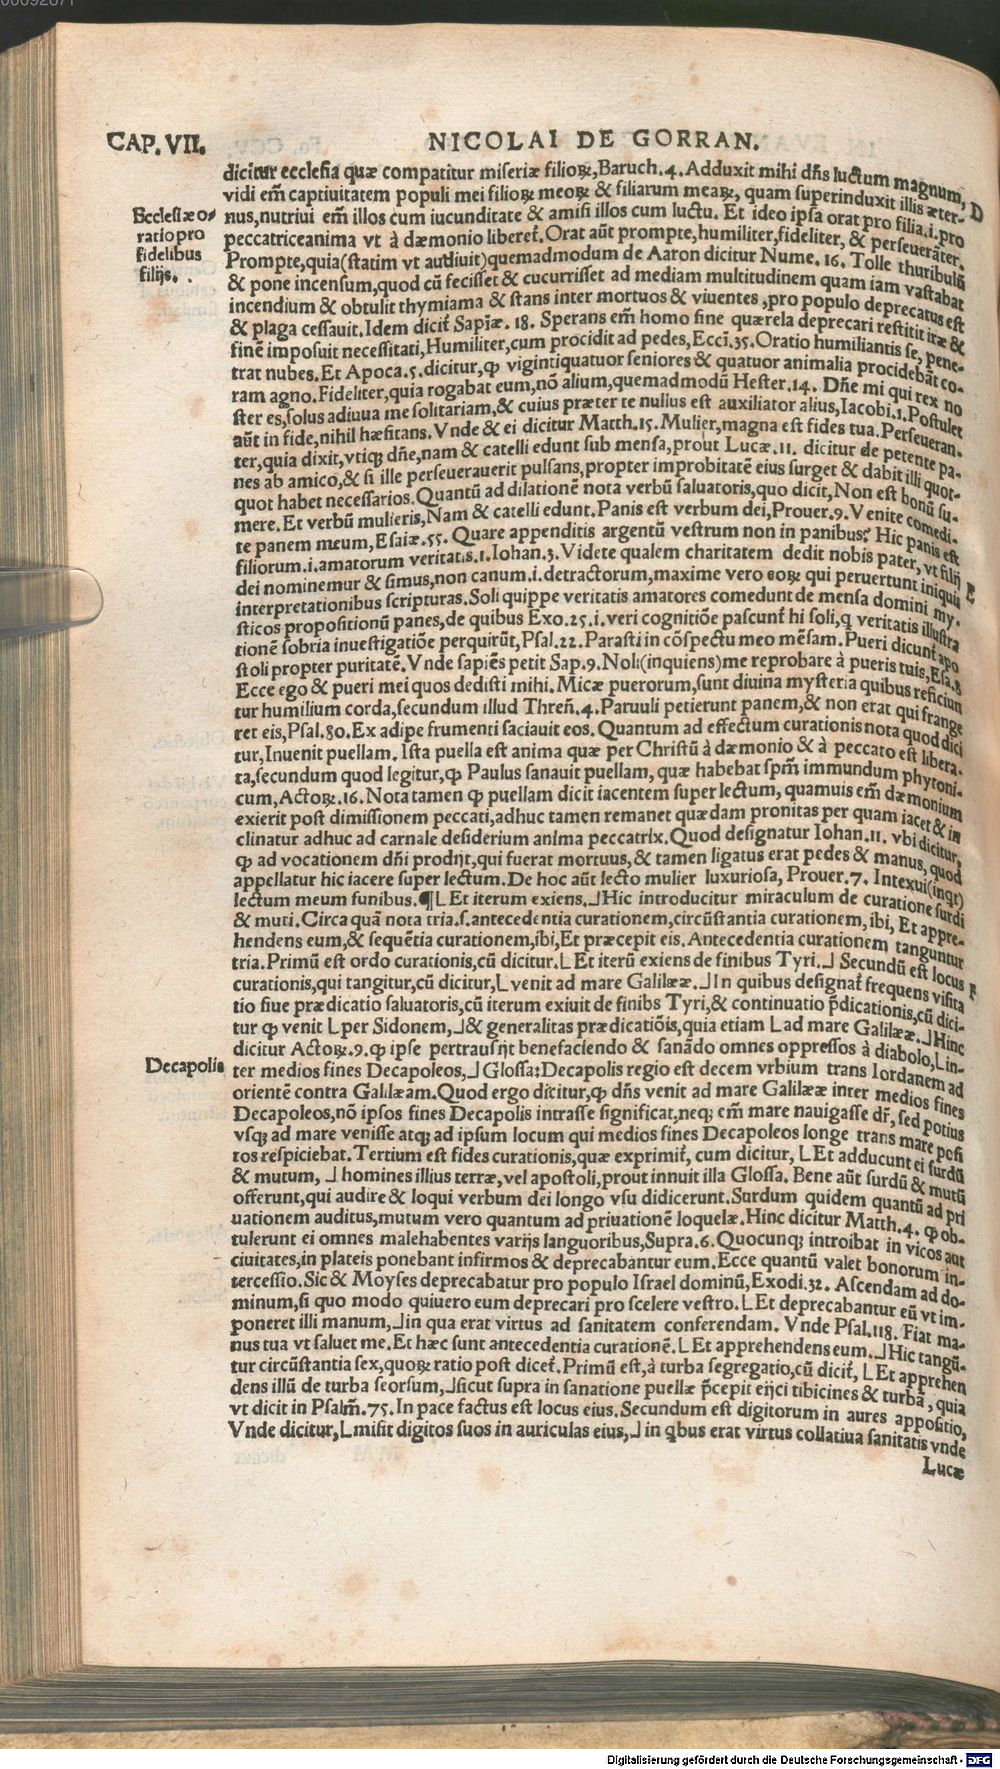 00092877
CAP. VII.
NICOLAI DE GORRAN.
dicitur ecclesia quæ compatitur miseriæ filioꝝ, Baruch. 4. Adduxit mihi dñs luctum magnum,
vidi em̃ captiuitatem populi mei filioꝝ meoꝝ & filiarum meaꝝ, quam superinduxit illis æter- D
Ecclesiæ o-
ratio pro
fidelibus
filijs.
nus, nutriui em̃ illos cum iucunditate & amisi illos cum luctu. Et ideo ipsa orat pro filia .i. pro
peccatrice anima vt à dæmonio liberet̃. Orat aũt prompte, humiliter, fideliter, & perseuerãter.
Prompte, quia (statim vt audiuit) quemadmodum de Aaron dicitur Nume. 16. Tolle thuribulũ
& pone incensum, quod cũ fecisset & cucurrisset ad mediam multitudinem quam iam vastabat
incendium & obtulit thymiama & stans inter mortuos & viuentes, pro populo deprecatus est
& plaga cessauit. Idem dicit̃ Sapiæ. 18. Sperans em̃ homo sine quærela deprecari restitit iræ &
finẽ imposuit necessitati, Humiliter, cum procidit ad pedes, Ecci. 35. Oratio humiliantis se, pene-
trat nubes. Et Apoca. 5. dicitur, ꝙ vigintiquatuor seniores & quatuor animalia procidebãt co-
ram agno. Fideliter, quia rogabat eum, nõ alium, quemadmodũ Hester. 14. Dñe mi qui rex no
ster es, solus adiuua me solitariam, & cuius præter te nullus est auxiliator alius, Iacobi. 1. Postulet
aũt in fide, nihil hæsitans. Vnde & ei dicitur Matth. 15. Mulier, magna est fides tua. Perseueran-
ter, quia dixit, vtiqꝫ dñe, nam & catelli edunt sub mensa, prout Lucæ. 11. dicitur de petente pa-
nes ab amico, & si ille perseuerauerit pulsans, propter improbitatẽ eius surget & dabit illi quot-
quot habet necessarios. Quantũ ad dilationẽ nota verbũ saluatoris, quo dicit, Non est bonũ su-
mere. Et verbũ mulieris, Nam & catelli edunt. Panis est verbum dei, Prouer. 9. Venite comedi-
te panem meum, Esaiæ. 55. Quare appenditis argentũ vestrum non in panibus? Hic panis est
filiorum .i. amatorum veritatis. 1. Iohan. 3. Videte qualem charitatem dedit nobis pater, vt filij
dei nominemur & simus, non canum .i. detractorum, maxime vero eoꝝ qui peruertunt iniquis E
interpretationibus scripturas. Soli quippe veritatis amatores comedunt de mensa domini my-
sticos propositionũ panes, de quibus Exo. 25. i. veri cognitiõe pascunt̃ hi soli, q veritatis illustra
tionẽ sobria inuestigatiõe perquirũt, Psal. 22. Parasti in cõspectu meo mẽsam. Pueri dicunt̃ apo
stoli propter puritatẽ. Vnde sapiẽs petit Sap. 9. Noli (inquiens) me reprobare à pueris tuis, Esa. 8
Ecce ego & pueri mei quos dedisti mihi. Micæ puerorum, sunt diuina mysteria quibus reficiun
tur humilium corda, secundum illud Threñ. 4. Paruuli petierunt panem, & non erat qui frange
ret eis, Psal. 80. Ex adipe frumenti saciauit eos. Quantum ad effectum curationis nota quod dici
tur, Inuenit puellam. Ista puella est anima quæ per Christũ à dæmonio & à peccato est libera-
ta, secundum quod legitur, ꝙ Paulus sanauit puellam, quæ habebat spm̃ immundum phytoni-
cum, Actoꝝ. 16. Nota tamen ꝙ puellam dicit iacentem super lectum, quamuis em̃ dæmonium
exierit post dimissionem peccati, adhuc tamen remanet quædam pronitas per quam iacet & in
clinatur adhuc ad carnale desiderium anima peccatrix. Quod designatur Iohan. 11. vbi dicitur,
ꝙ ad vocationem dñi prodijt, qui fuerat mortuus, & tamen ligatus erat pedes & manus, quod
appellatur hic iacere super lectum. De hoc aũt lecto mulier luxuriosa, Prouer. 7. Intexui (inqt)
lectum meum funibus. ¶⌊Et iterum exiens.⌋Hic introducitur miraculum de curatione surdi
& muti. Circa quã nota tria. s. antecedentia curationem, circũstantia curationem, ibi, Et appre-
hendens eum, & sequẽtia curationem, ibi, Et præcepit eis. Antecedentia curationem tanguntur
tria. Primũ est ordo curationis, cũ dicitur. ⌊Et iterũ exiens de finibus Tyri.⌋ Secundũ est locus
curationis, qui tangitur, cũ dicitur, ⌊venit ad mare Galilææ.⌋In quibus designat̃ frequens visita F
tio siue prædicatio saluatoris, cũ iterum exiuit de finibs Tyri, & continuatio p̃dicationis, cũ dici-
tur ꝙ venit ⌊per Sidonem,⌋& generalitas prædicatiõis, quia etiam ⌊ad mare Galilææ.⌋Hinc
dicitur Actoꝝ. 9. ꝙ ipse pertransijt benefaciendo & sanãdo omnes oppressos à diabolo, ⌊in-
Decapolis
ter medios fines Decapoleos,⌋Glossa: Decapolis regio est decem vrbium trans Iordanem ad
orientẽ contra Galilæam. Quod ergo dicitur, ꝙ dñs venit ad mare Galilææ inter medios fines
Decapoleos, nõ ipsos fines Decapolis intrasse significat, neqꝫ em̃ mare nauigasse dr̃, sed potius
vsqꝫ ad mare venisse atqꝫ ad ipsum locum qui medios fines Decapoleos longe trans mare posi
tos respiciebat. Tertium est fides curationis, quæ exprimit̃, cum dicitur, ⌊Et adducunt ei surdũ
& mutum,⌋ homines illius terræ, vel apostoli, prout innuit illa Glossa. Bene aũt surdũ & mutũ
offerunt, qui audire & loqui verbum dei longo vsu didicerunt. Surdum quidem quantũ ad pri
uationem auditus, mutum vero quantum ad priuationẽ loquelæ. Hinc dicitur Matth. 4. ꝙ ob-
tulerunt ei omnes malehabentes varijs languoribus, Supra. 6. Quocunqꝫ introibat in vicos aut
ciuitates, in plateis ponebant infirmos & deprecabantur eum. Ecce quantũ valet bonorum in-
tercessio. Sic & Moyses deprecabatur pro populo Israel dominũ, Exodi. 32. Ascendam ad do-
minum, si quo modo quiuero eum deprecari pro scelere vestro. ⌊Et deprecabantur eũ vt im-
poneret illi manum,⌋in qua erat virtus ad sanitatem conferendam. Vnde Psal. 118. Fiat ma-
nus tua vt saluet me. Et hæc sunt antecedentia curationẽ. ⌊Et apprehendens eum.⌋Hic tangũ-
tur circũstantia sex, quoꝝ ratio post dicet̃. Primũ est, à turba segregatio, cũ dicit̃, ⌊Et apprehen
dens illũ de turba seorsum,⌋sicut supra in sanatione puellæ p̃cepit eijci tibicines & turbã, quia
vt dicit in Psalm̃. 75. In pace factus est locus eius. Secundum est digitorum in aures appositio,
Vnde dicitur, ⌊misit digitos suos in auriculas eius,⌋in qbus erat virtus collatiua sanitatis vnde
Lucæ
Digitalisierung gefördert durch die Deutsche Forschungsgemeinschaft - DFG